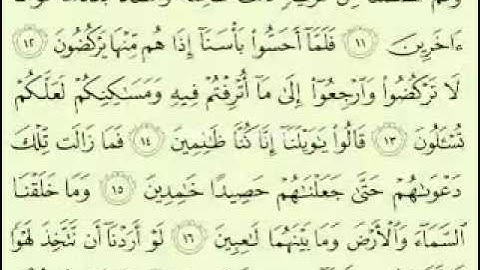 ءَاخَرِينَ ١١ فَلَمَّآ أَحَسُّوا۟ بَأْسَنَآ إِذَا هُم مِّنْهَا يَرْكُضُونَ ١٢
لَا تَرْكُضُوا۟ وَٱرْجِعُوٓا۟ إِلَىٰ مَآ أُتْرِفْتُمْ فِيهِ وَمَسَـٰكِنِكُمْ لَعَلَّكُمْ
تُسْـَٔلُونَ ١٣ قَالُوا۟ يَـٰوَيْلَنَآ إِنَّا كُنَّا ظَـٰلِمِينَ ١٤ فَمَا زَالَت تِّلْكَ
دَعْوَىٰهُمْ حَتَّىٰ جَعَلْنَـٰهُمْ حَصِيدًا خَـٰمِدِينَ ١٥ وَمَا خَلَقْنَا
ٱلسَّمَآءَ وَٱلْأَرْضَ وَمَا بَيْنَهُمَا لَـٰعِبِينَ ١٦ لَوْ أَرَدْنَآ أَن نَّتَّخِذَ لَهْوًا